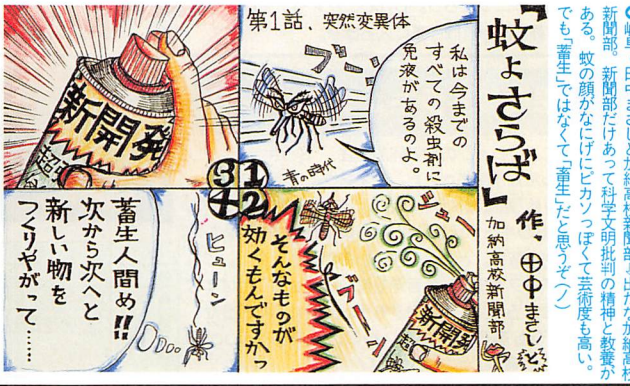 岐阜・田中まさしと加納高校新聞部↓出たな加納高校
新聞部。新聞部だけあって科学文明批判の精神と教養が
ある。蚊の顔がなにげにピカソっぽくて芸術度も高い。
でも「蓄生」ではなくて「畜生」だと思うぞ(ノ)
『蚊よさらば』
作、田中まさしと
加納高校新聞部
第1話、突然変異体
私は今までの
すべての殺虫剤に
免液があるのよ。
ブーン
青の時代
1
2
シュー
新開発
ブーン
そんなものが
効くもんですかっ
3
新開発
4
ヒューン
蓄生人間め!!
次から次へと
新しい物を
つくりやがって……